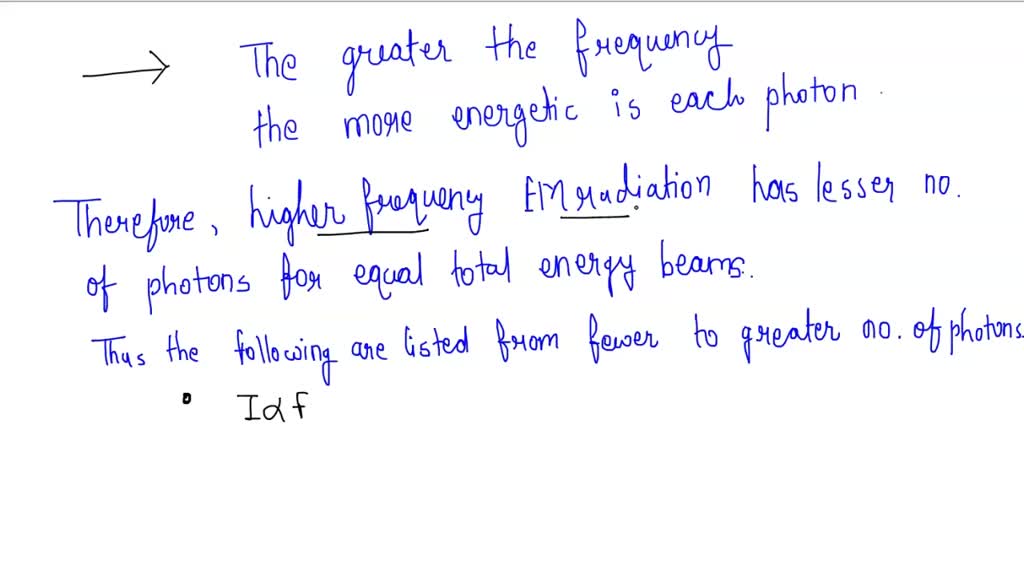 The greater the frequency
the more energetic is each photon
Therefore, higher frequency EM radiation has lesser no.
of photons for equal total energy beams.
Thus the following are listed from fewer to greater no. of photons.
• I α f